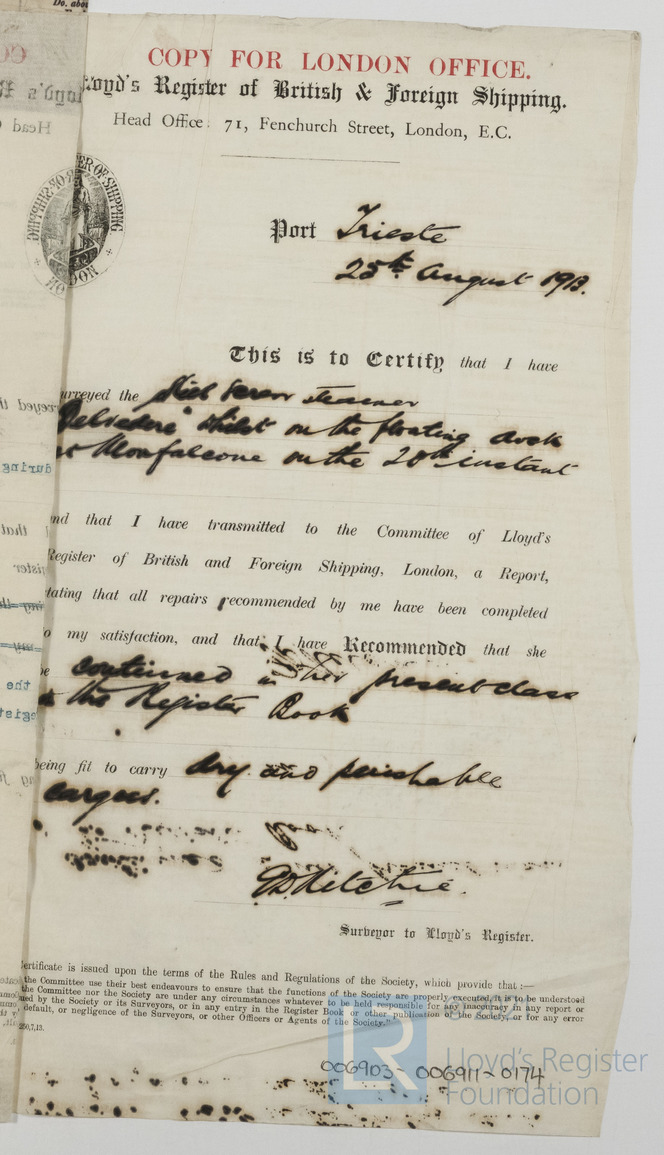 COPY FOR LONDON OFFICE.
Lloyd's Register of British & Foreign Shipping.
Head Office: 71, Fenchurch Street, London, E.C.
Port Trieste
25th August 1913.
This is to Certify that I have
urveyed the Steel Screw steamer
Belvedere" whilst on the floating dock
at Monfalcone on the 20th instant
and that I have transmitted to the Committee of Lloyd's
Register of British and Foreign Shipping, London, a Report,
tating that all repairs recommended by me have been completed
o my satisfaction, and that I have Recommended that she
be continued in her present class
in the Register Book
being fit to carry dry and perishable
cargoes.
Surveyor to Lloyd's Register.
ertificate is issued upon the terms of the Rules and Regulations of the Society, which provide that :—
the Committee use their best endeavours to ensure that the functions of the Society are properly executed, it is to be understood
the Committee nor the Society are under any circumstances whatever to be held responsible for any inaccuracy in any report or
ued by the Society or its Surveyors, or in any entry in the Register Book or other publication of the Society, or for any error
default, or negligence of the Surveyors, or other Officers or Agents of the Society."
006903-006911-0174
Lloyd's Register
Foundation